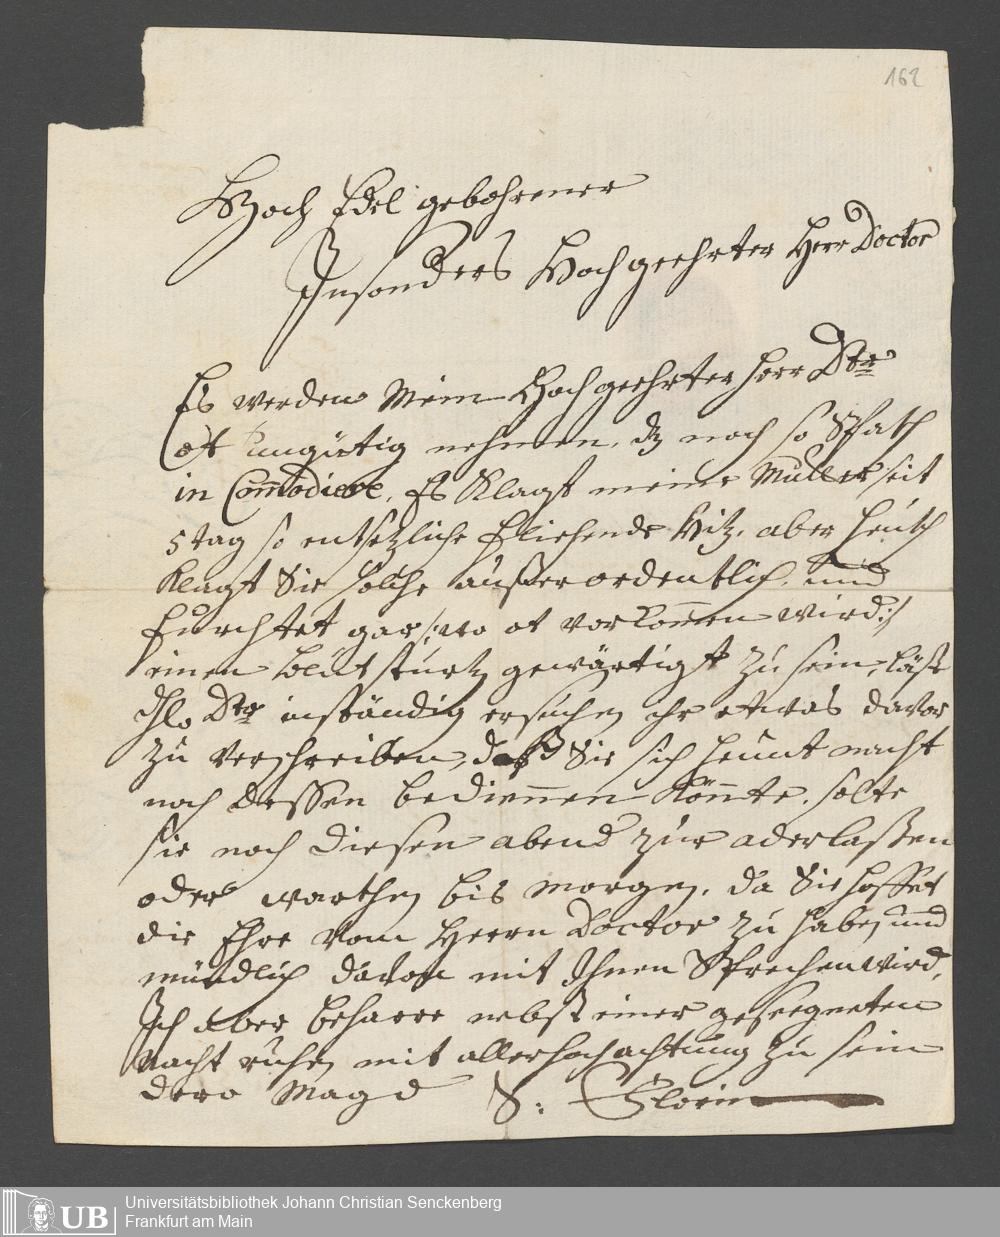 162
Hoch Edel gebohrener
Insonders Hoch geehrter Herr Doctor
Es werden Mein Hoch geehrter Herr Dtr
ungütig nehmen, dz noch so Spath
in Commodiere, Es Klagt meine Mutter seit
5 tag so entsetzliche fliehende Hitz, aber heüth
Klagt Sie solche ausserordentlich, und
furchtet gar /: wo vorkommen wird :/
einen blut sturtz gewärtigt zu sein, läst
Dtr inständig ersuchen ihr etwas davor
zu verschreiben, daß Sie sich heünt nacht
noch dessen bediennen könnte, solte
sie noch diesen abend zur aderlaßen
oder warthen bis morgen, da Sie hoffet
die Ehre vom Herrn Doctor zu haben und
mündlich davon mit Ihnen Sprechen wird,
Ich aber beharre nebst einer geseegneten
Nacht ruhe mit aller hochachtung zu sein
dero Magd S:
Universitätsbibliothek Johann Christian Senckenberg
Frankfurt am Main
UB